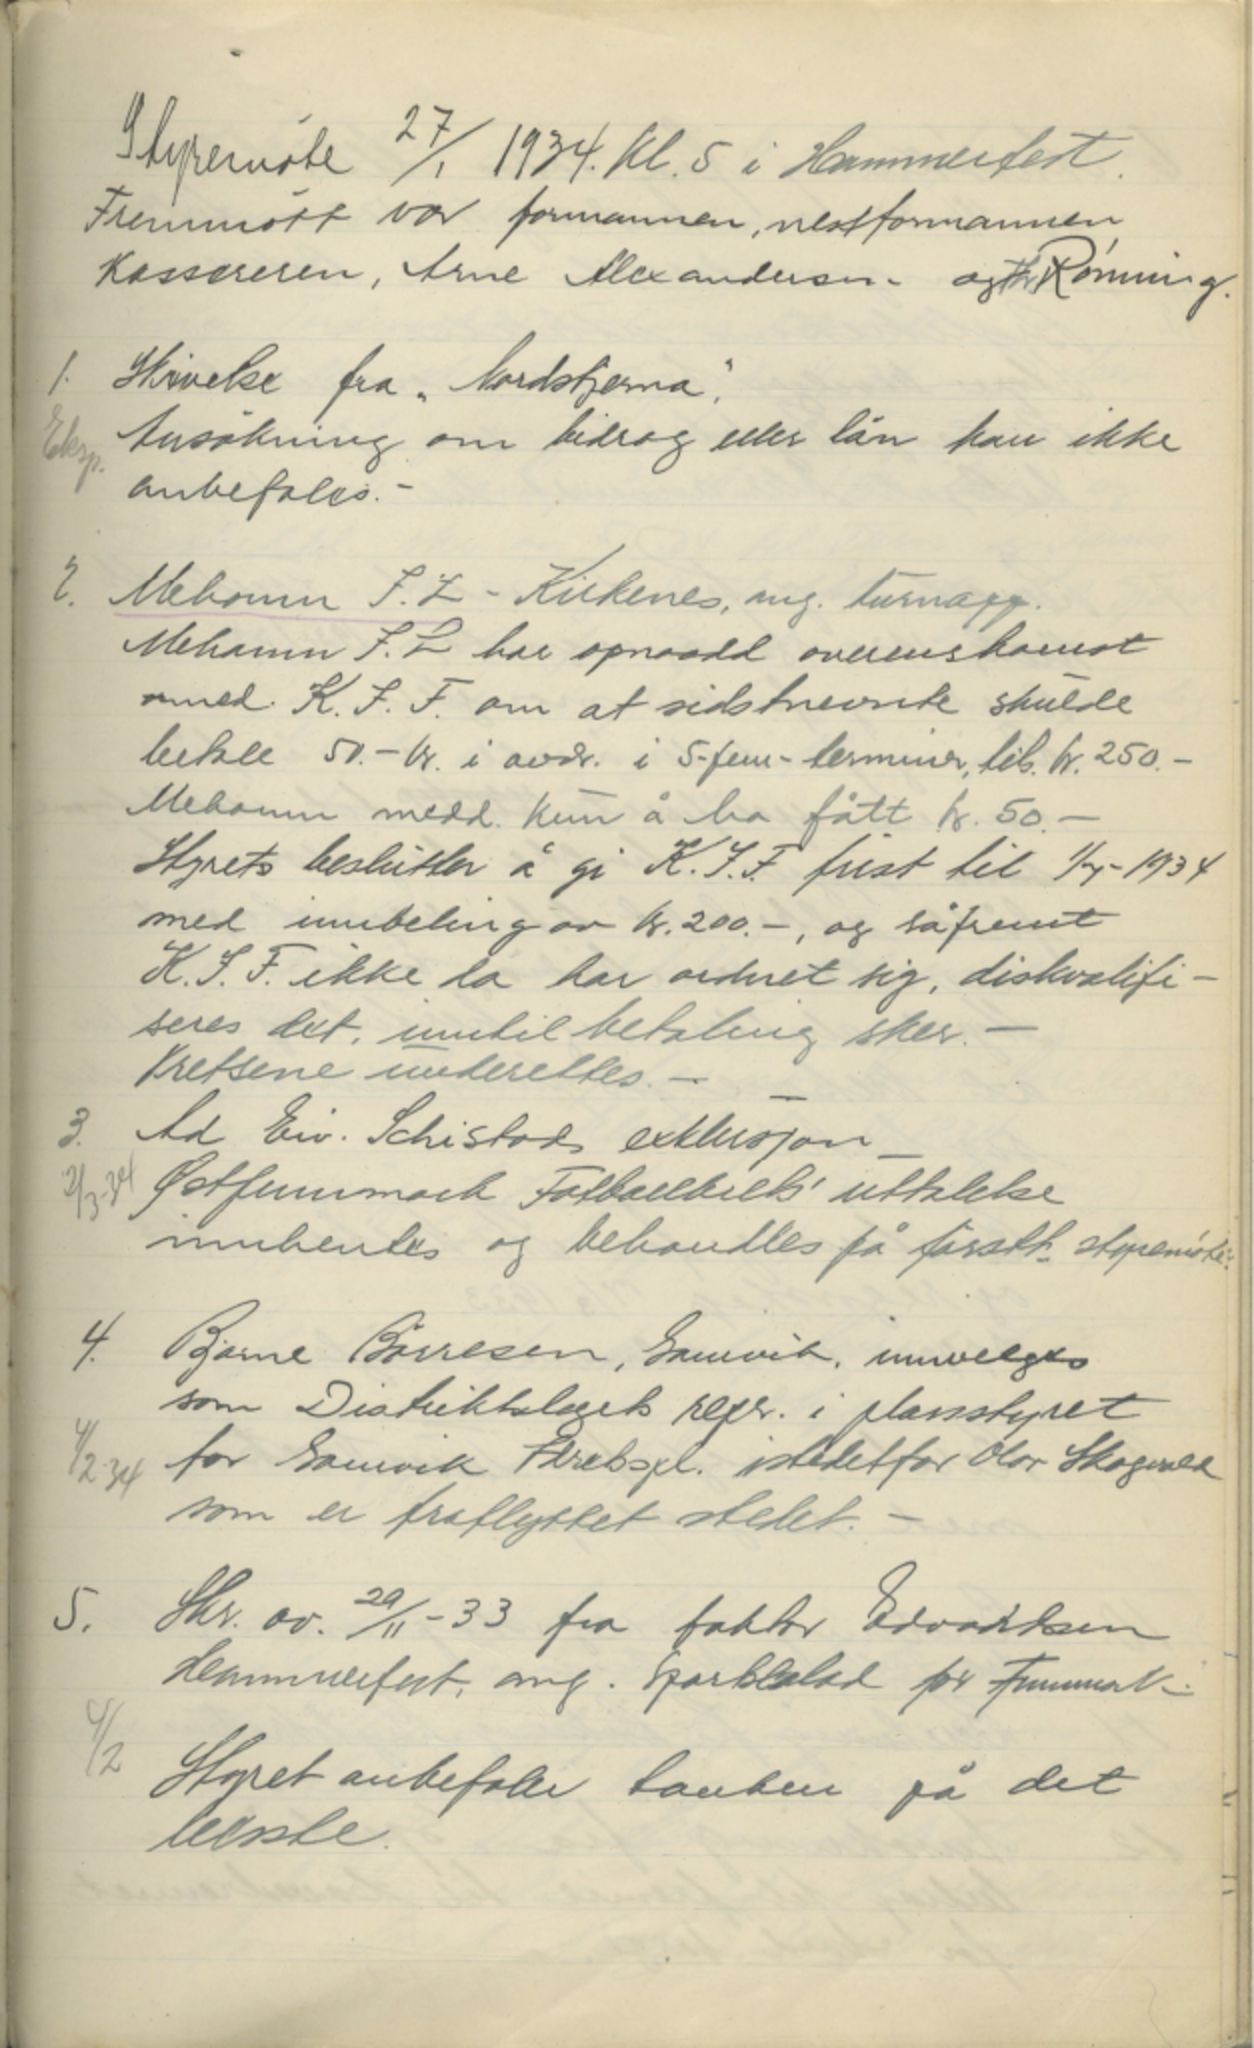 Styremöte 27/1 1934. kl. 5 i Hammerfest.
Fremmött var formannen, nestformannen
Kassereren, Arne Alexandersen - og Th. Rönning.
1. Skrivelse fra „Nordstjerna".
Eksp. Ansökning om bidrag eller lån kan ikke
anbefales. -
2. Mehamn I.L - Kirkenes, ang. turnapp.
Mehamn I.L har opnaadd overenskomst
med K.I.F. om at sidstnevnte skulde
betale 50.- kr. i avdr. i 5-fem- terminer, tils. kr. 250.-
Mehamn medd. kun å ha fått kr. 50.-
Styrets beslutter å gi K.I.F. frist til 1/4-1934
med innbetling av kr. 200.-, og såfremt
K.I.F. ikke da har ordnet sig, diskvalifi-
seres det, inntil betaling sker. -
Kretsene underettes. -
3. Ad Eiv. Schistads exklusjon -
2/3-34 Østfinnmark Fotballkrets' uttalelse
innhentes og behandles på förstk. styremöte.
4. Bjarne Börresen, Gamvik, innvelges
som Distriktslagets repr. i planstyret
4/2-34 for Gamvik Idretspl. istedetfor Olav Skogvold
som er fraflyttet stedet. -
5. Skr. av. 29/11-33 fra faktor Edvardsen
Hammerfest, ang. Sportsblad for Finnmark.
4/2 Styret anbefaler tanken på det
beste.